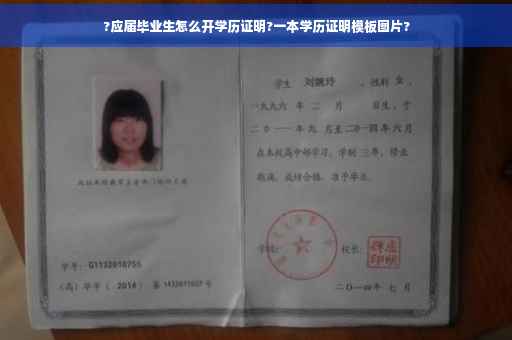 ?应届毕业生怎么开学历证明?一本学历证明模板图片?
学生 刘婉玲 ，性别 女 ，
一九九六 年 二 月 日生，于
二〇一一 年 九 月至 二〇一四 年 六 月
在本校高中部学习，学制 三 年，修业
期满，成绩合格，准予毕业。
学校：
校长：
学号：G1132010755
（高）毕字（ 2014 ）第 1432011027 号
二〇一四年 七 月